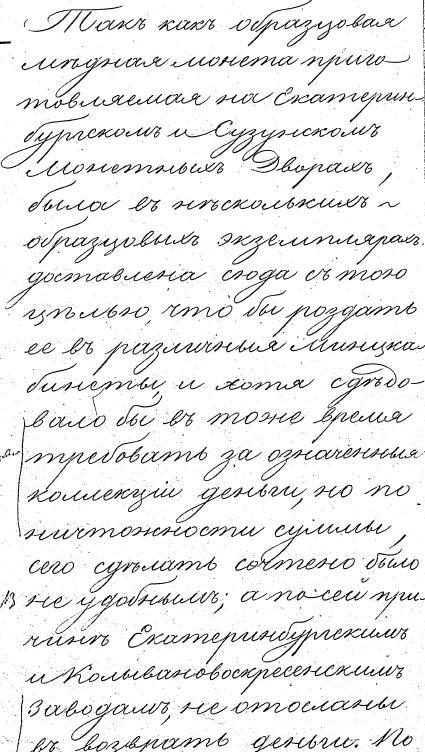 Такъ какъ образцовая
мѣдная монета приго
товляемая на Екатерин-
бургскомъ и Сузунскомъ
Монетныхъ Дворахъ,
была въ нѣсколькихъ ~
образцовыхъ экземплярахъ
доставлена сюда съ тою
цѣлью, что бы роздать
ее въ различныя минцка
бинеты, и хотя слѣдо-
вало бы въ тоже время
требовать за означенныя
коллекціи деньги, но по
ничтожности суммы,
сего сдѣлать сочтено было
не удобнымъ; а по сей при
чинѣ Екатеринбургскимъ
и Колывановоскресенскимъ
Заводамъ, не отосланы
въ возвратъ деньги. По